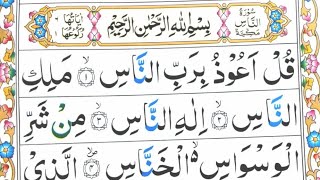 سُورَةُ النَّاسِ مَكِّيَّة
بِسْمِ اللهِ الرَّحْمٰنِ الرَّحِيْمِ
اٰيَاتُهَا ٦ رُكُوْعُهَا ١
قُلْ اَعُوْذُ بِرَبِّ النَّاسِ ۙ‏﴿۱﴾ مَلِكِ
النَّاسِ ۙ‏﴿۲﴾ اِلٰهِ النَّاسِ ۙ‏﴿۳﴾ مِنْ شَرِّ
الْوَسْوَاسِ ۙ الْخَنَّاسِ ۪ۙ‏﴿۴﴾ الَّذِيْ